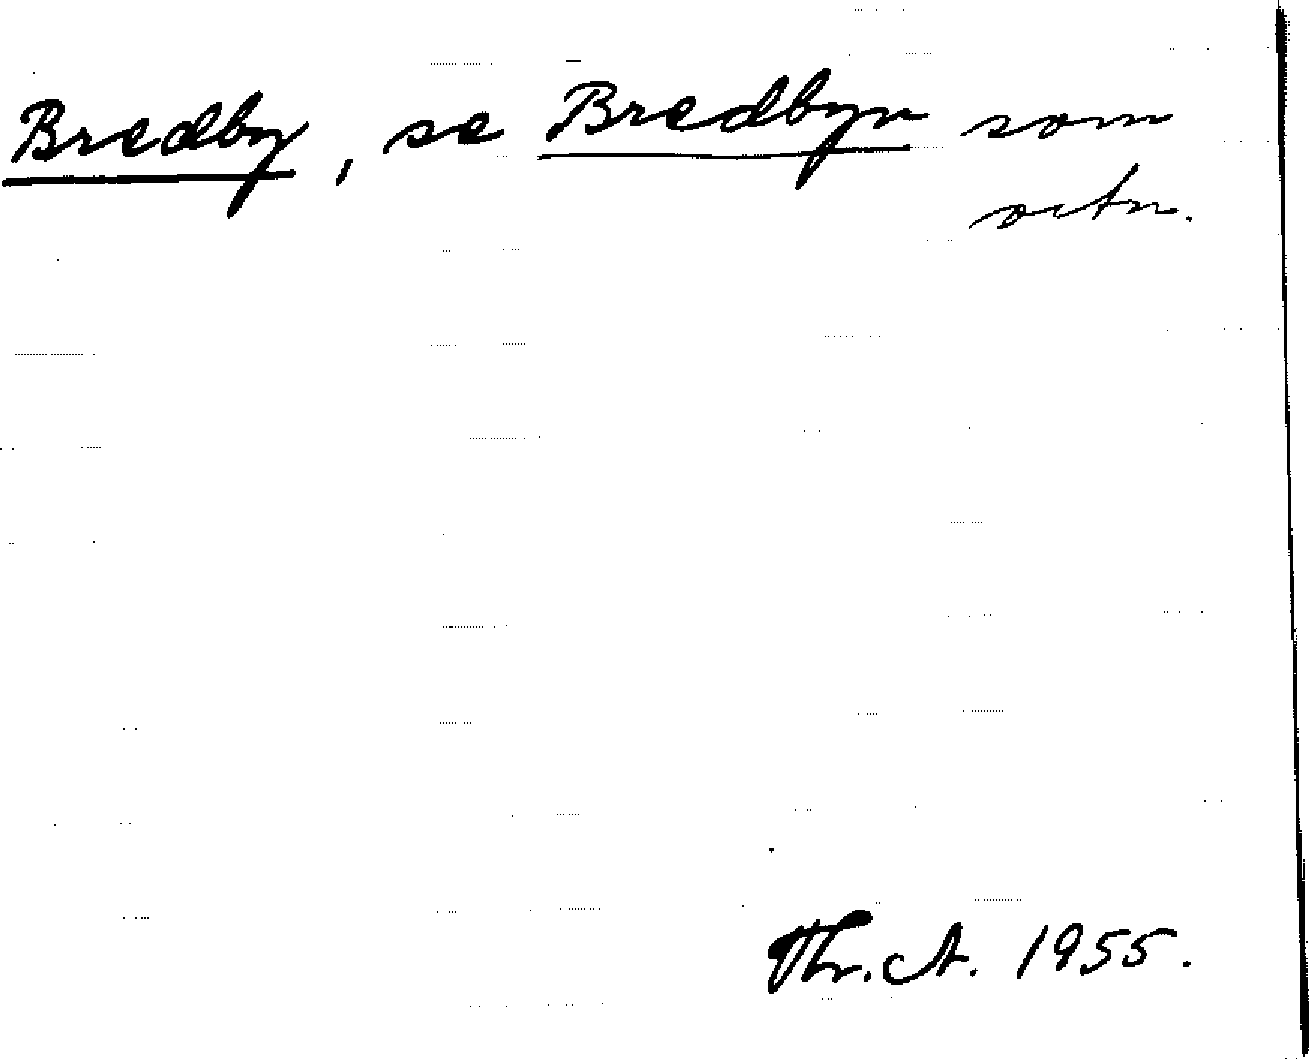 Bredby, se Bredbyn som
octn.
Thr. A. 1955.